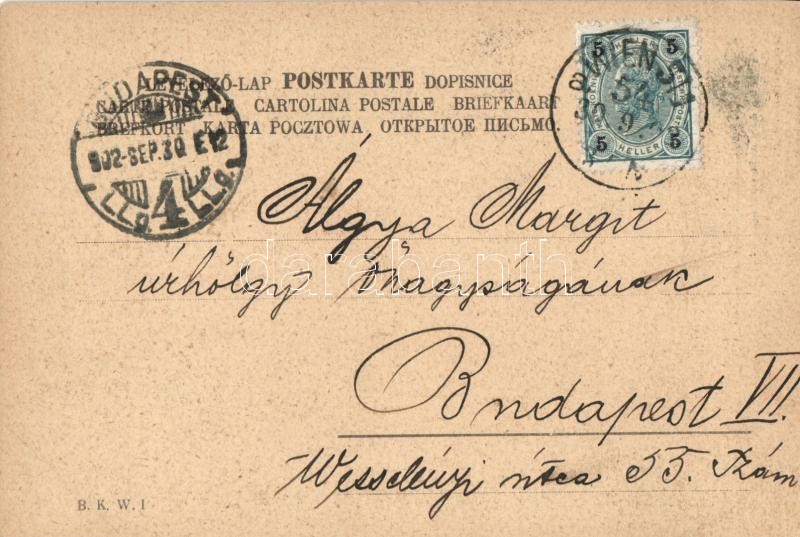 LEVELEZŐ-LAP POSTKARTE DOPISNICE
CARTE POSTALE CARTOLINA POSTALE BRIEFKAART
BREFKORT KARTA POCZTOWA ОТКРЫТОЕ ПИСЬМО
BUDAPEST
902-SEP.30 E12
4
5 5
HELLER
5 5
WIEN
30 9
Álgya Margit
úrhölgy őnagyságának
darabanth
Budapest VII.
Wesselényi útca 55. szám
B. K. W. I